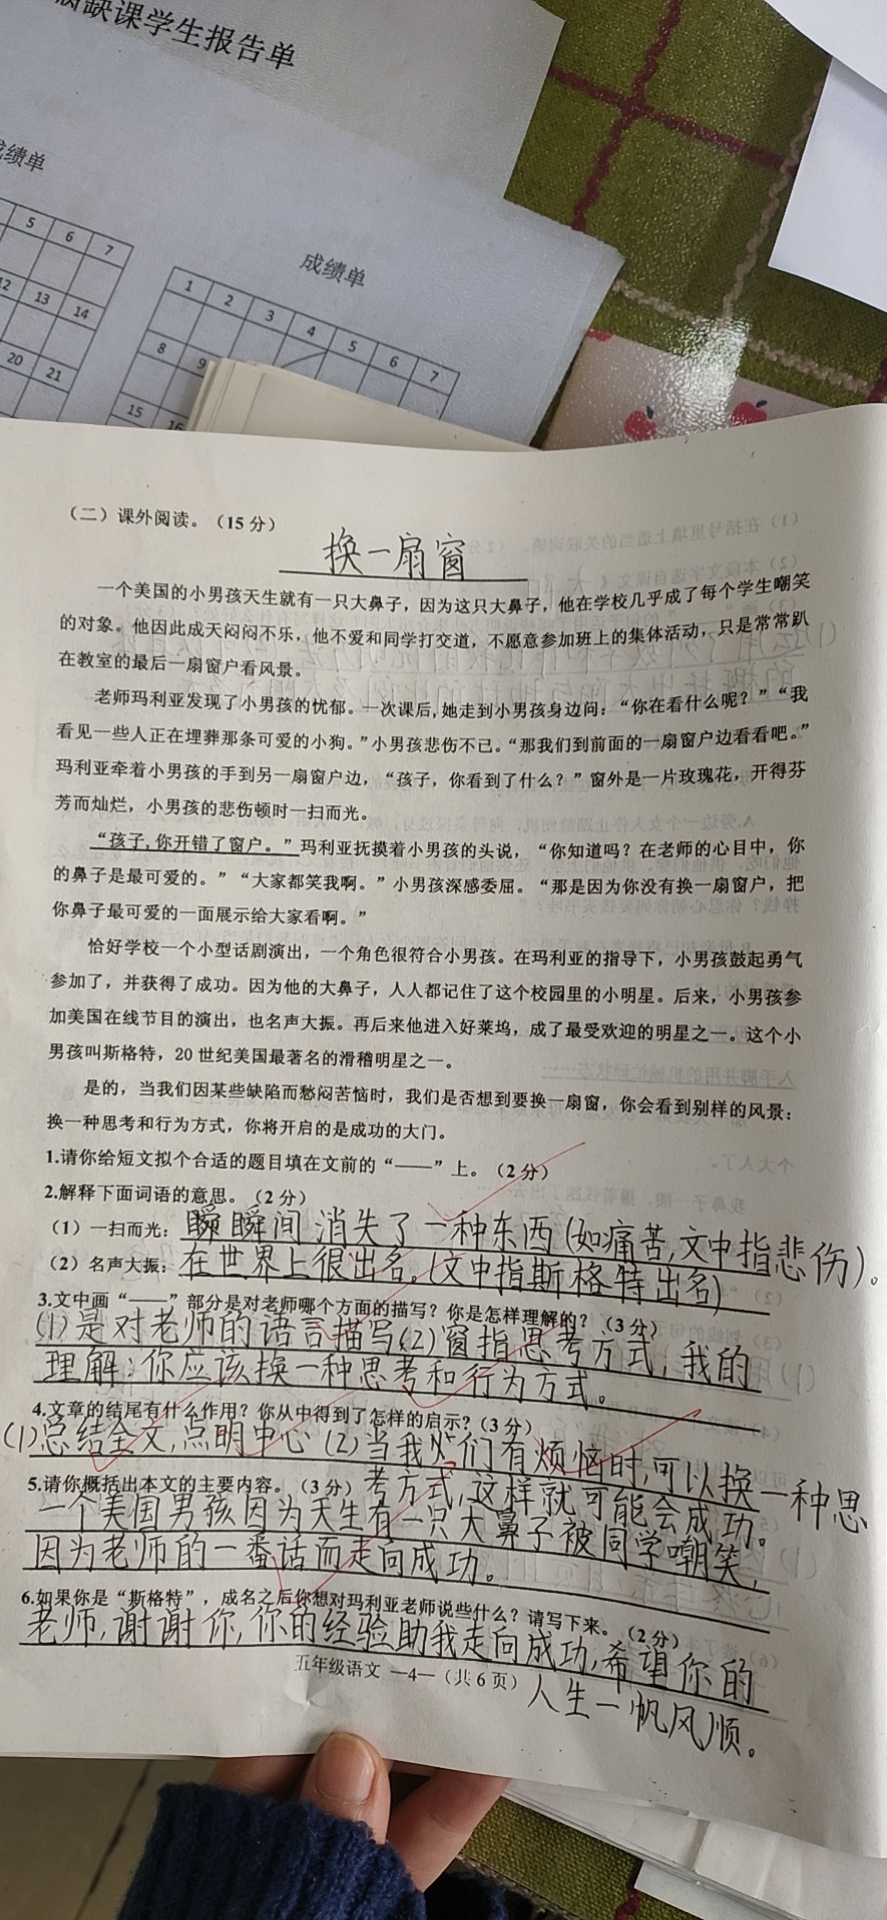 缺课学生报告单
成绩单
5 6 7
12 13 14
20 21
成绩单
1 2 3 4 5 6 7
8 9
15 16
（二）课外阅读。（15 分）
换一扇窗
一个美国的小男孩天生就有一只大鼻子，因为这只大鼻子，他在学校几乎成了每个学生嘲笑
的对象。他因此成天闷闷不乐，他不爱和同学打交道，不愿意参加班上的集体活动，只是常常趴
在教室的最后一扇窗户看风景。
老师玛利亚发现了小男孩的忧郁。一次课后,她走到小男孩身边问：“你在看什么呢？”“我
看见一些人正在埋葬那条可爱的小狗。”小男孩悲伤不已。“那我们到前面的一扇窗户边看看吧。”
玛利亚牵着小男孩的手到另一扇窗户边，“孩子，你看到了什么？”窗外是一片玫瑰花，开得芬
芳而灿烂，小男孩的悲伤顿时一扫而光。
“孩子,你开错了窗户。”玛利亚抚摸着小男孩的头说，“你知道吗？在老师的心目中，你
的鼻子是最可爱的。”“大家都笑我啊。”小男孩深感委屈。“那是因为你没有换一扇窗户，把
你鼻子最可爱的一面展示给大家看啊。”
恰好学校一个小型话剧演出，一个角色很符合小男孩。在玛利亚的指导下，小男孩鼓起勇气
参加了，并获得了成功。因为他的大鼻子，人人都记住了这个校园里的小明星。后来，小男孩参
加美国在线节目的演出，也名声大振。再后来他进入好莱坞，成了最受欢迎的明星之一。这个小
男孩叫斯格特，20 世纪美国最著名的滑稽明星之一。
是的，当我们因某些缺陷而愁闷苦恼时，我们是否想到要换一扇窗，你会看到别样的风景：
换一种思考和行为方式，你将开启的是成功的大门。
1.请你给短文拟个合适的题目填在文前的“——”上。（2 分）
2.解释下面词语的意思。（2 分）
（1）一扫而光：瞬间消失了一种东西(如痛苦,文中指悲伤)。
（2）名声大振：在世界上很出名。(文中指斯格特出名)
3.文中画“——”部分是对老师哪个方面的描写？你是怎样理解的？（3 分）
(1)是对老师的语言描写(2)窗指思考方式，我的
理解：你应该换一种思考和行为方式。
4.文章的结尾有什么作用？你从中得到了怎样的启示？（3 分）
(1)总结全文,点明中心 (2)当我们有烦恼时,可以换一种思
考方式,这样就可能会成功。
5.请你概括出本文的主要内容。（3 分）
一个美国男孩因为天生有一只大鼻子被同学嘲笑,
因为老师的一番话而走向成功。
6.如果你是“斯格特”，成名之后你想对玛利亚老师说些什么？请写下来。（2 分）
老师,谢谢你,你的经验助我走向成功,希望你的
人生一帆风顺。
五年级语文 —4—（共 6 页）